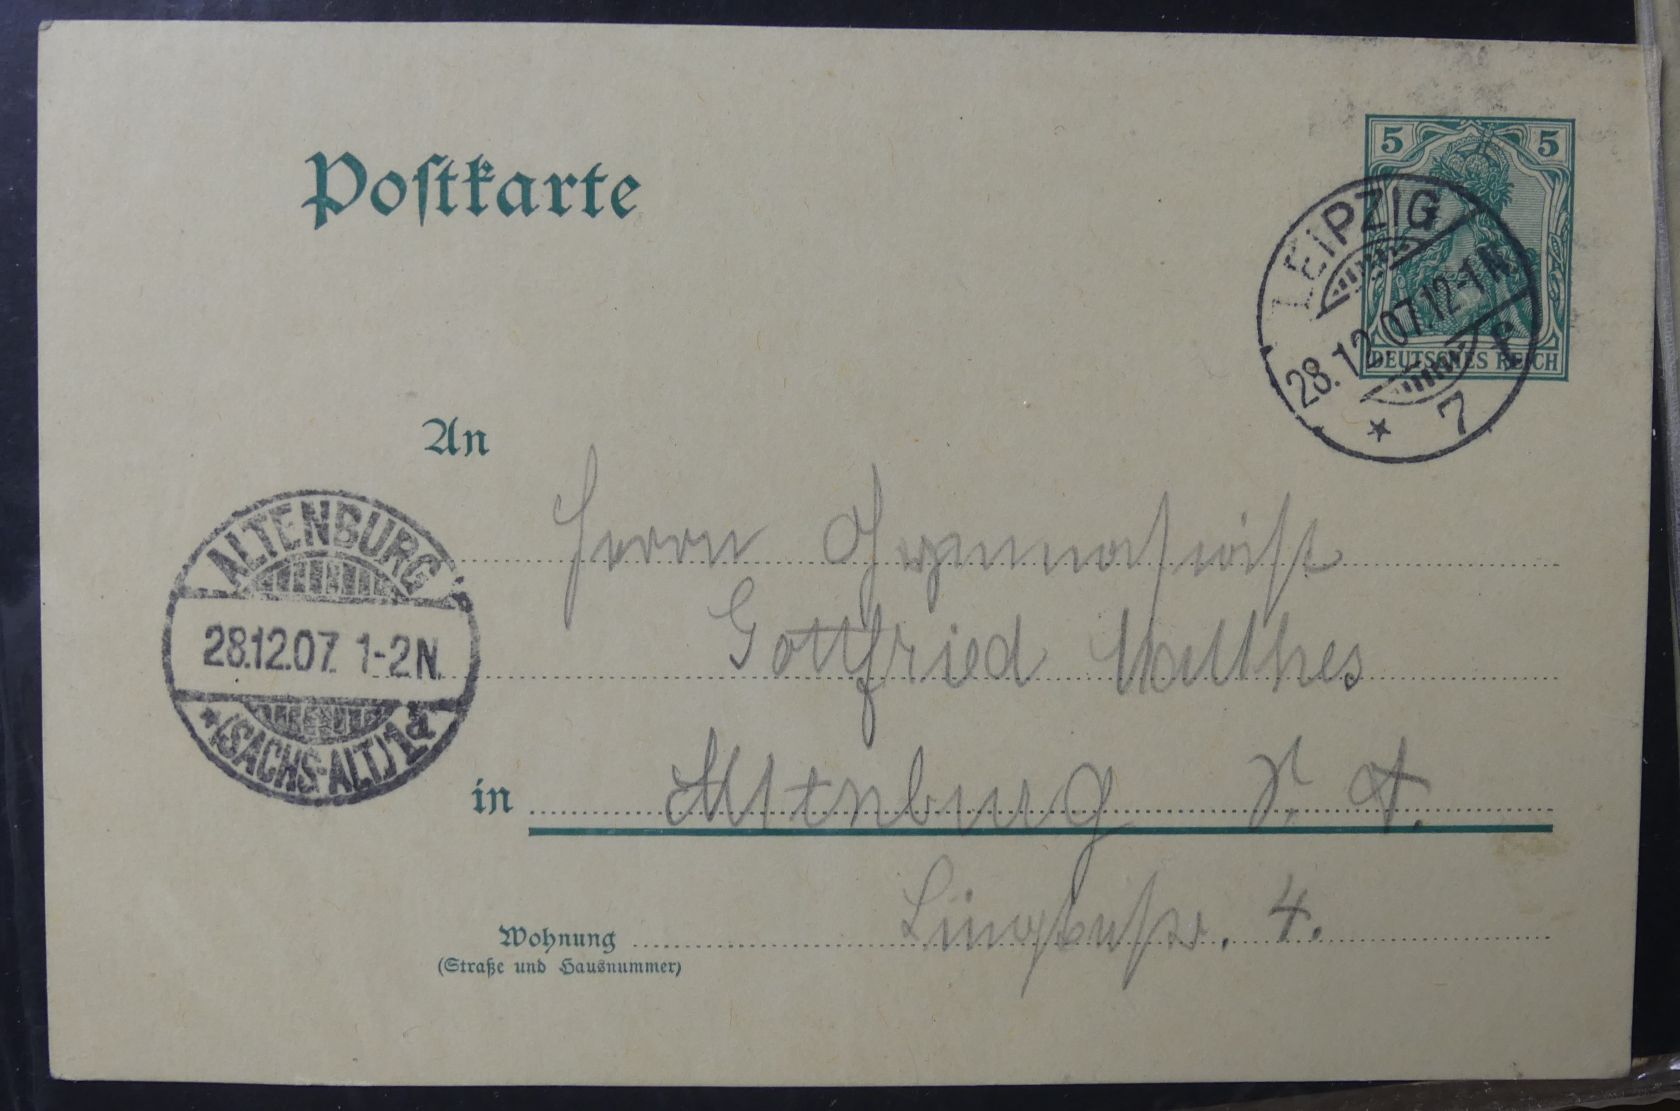 Postkarte
5 5
DEUTSCHES REICH
LEIPZIG
28.12.07.12-1N
* 7 f
An
ALTENBURG
28.12.07. 1-2N.
*(SACHS-ALT.)1d
Herrn Gymnasiast
Gottfried Malthes
in Altenburg S. A.
Wohnung 4.
(Straße und Hausnummer)